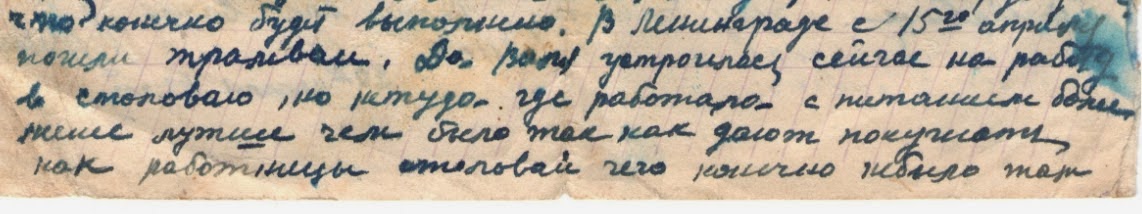 что конечно будет выполнено. В Ленинграде с 15го апреля
пошли трамваи. Да Валя устроилась сейчас на работу
в столоваю, но нетуда где работала с питанием более
менее лутше чем было так как дают покушать
как работницы столовай чего конечно небыло там